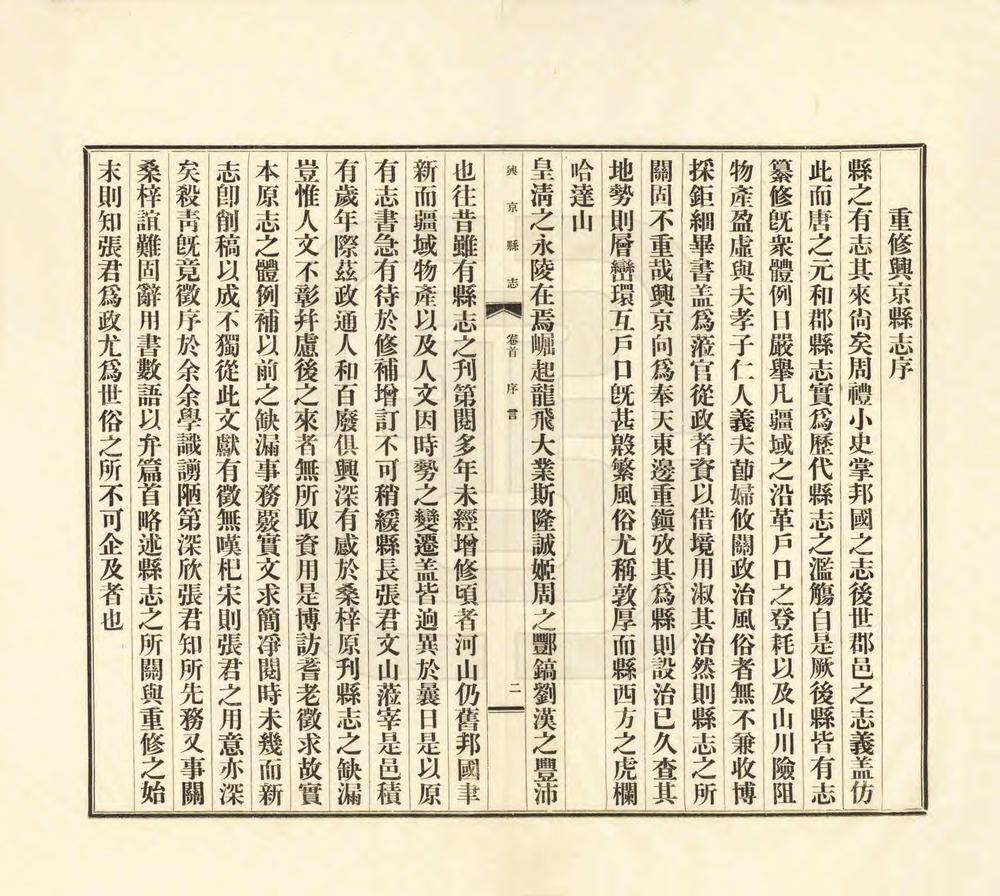 重修興京縣志序
縣之有志其來尙矣周禮小史掌邦國之志後世郡邑之志義盖仿
此而唐之元和郡縣志實爲歷代縣志之濫觴自是厥後縣皆有志
纂修旣衆體例日嚴舉凡疆域之沿革戶口之登耗以及山川險阻
物產盈虛與夫孝子仁人義夫節婦攸關政治風俗者無不兼收博
採鉅細畢書盖爲蒞官從政者資以借境用淑其治然則縣志之所
關固不重哉興京向爲奉天東邊重鎭攷其爲縣則設治已久查其
地勢則層巒環互戶口旣甚殷繁風俗尤稱敦厚而縣西方之虎欄
哈達山
皇淸之永陵在焉崛起龍飛大業斯隆誠姬周之酆鎬劉漢之豐沛
興京縣志 卷首 序言 二
也往昔雖有縣志之刊第閱多年未經增修頃者河山仍舊邦國聿
新而疆域物產以及人文因時勢之變遷盖皆逈異於曩日是以原
有志書急有待於修補增訂不可稍緩縣長張君文山蒞宰是邑積
有歲年際茲政通人和百廢俱興深有感於桑梓原刊縣志之缺漏
豈惟人文不彰幷慮後之來者無所取資用是博訪耆老徵求故實
本原志之體例補以前之缺漏事務覈實文求簡淨閱時未幾而新
志卽削稿以成不獨從此文獻有徵無嘆杞宋則張君之用意亦深
矣殺靑旣竟徵序於余余學識譾陋第深欣張君知所先務又事關
桑梓誼難固辭用書數語以弁篇首略述縣志之所關與重修之始
末則知張君爲政尤爲世俗之所不可企及者也